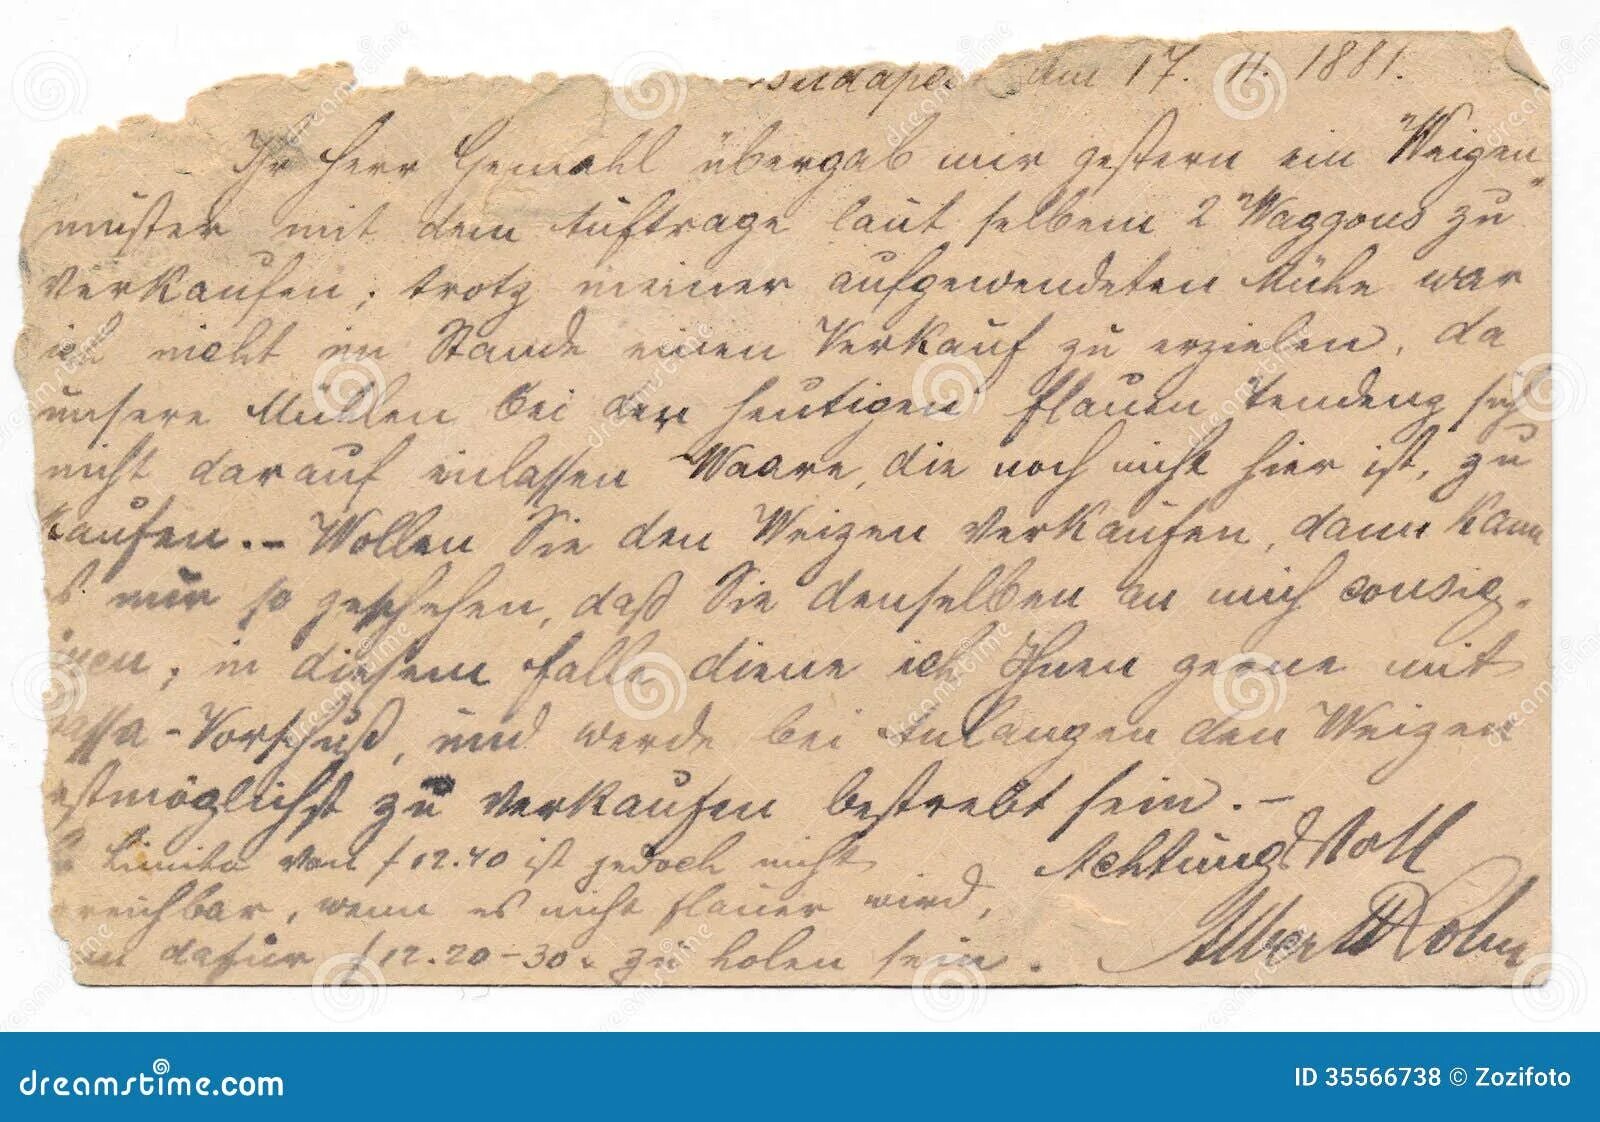 Budapest am 17. 11. 1881.
Ihr Herr Gemahl übergab mir gestern ein Weizen-
muster mit dem Auftrage laut selbem 2 Waggons zu
verkaufen; trotz meiner aufgewendeten Mühe war
ich nicht im Stande einen Verkauf zu erzielen, da
unsere Mühlen bei der heutigen flauen Tendenz sich
nicht darauf einlassen Waare, die noch nicht hier ist, zu
kaufen. – Wollen Sie den Weizen verkaufen, dann kann
es nur so geschehen, daß Sie denselben an mich consig-
niren; in diesem Falle diene ich Ihnen gerne mit
Cassa-Vorschuß, und werde bei Anlangen den Weizen
bestmöglichst zu verkaufen bestrebt sein. –
Limito von f 12.40 ist jedoch nicht
erreichbar, wenn es nicht flauer wird,
dafür f 12.20–30. zu holen sein.
Achtungsvoll
Albert
dreamstime.com
ID 35566738 © Zozifoto